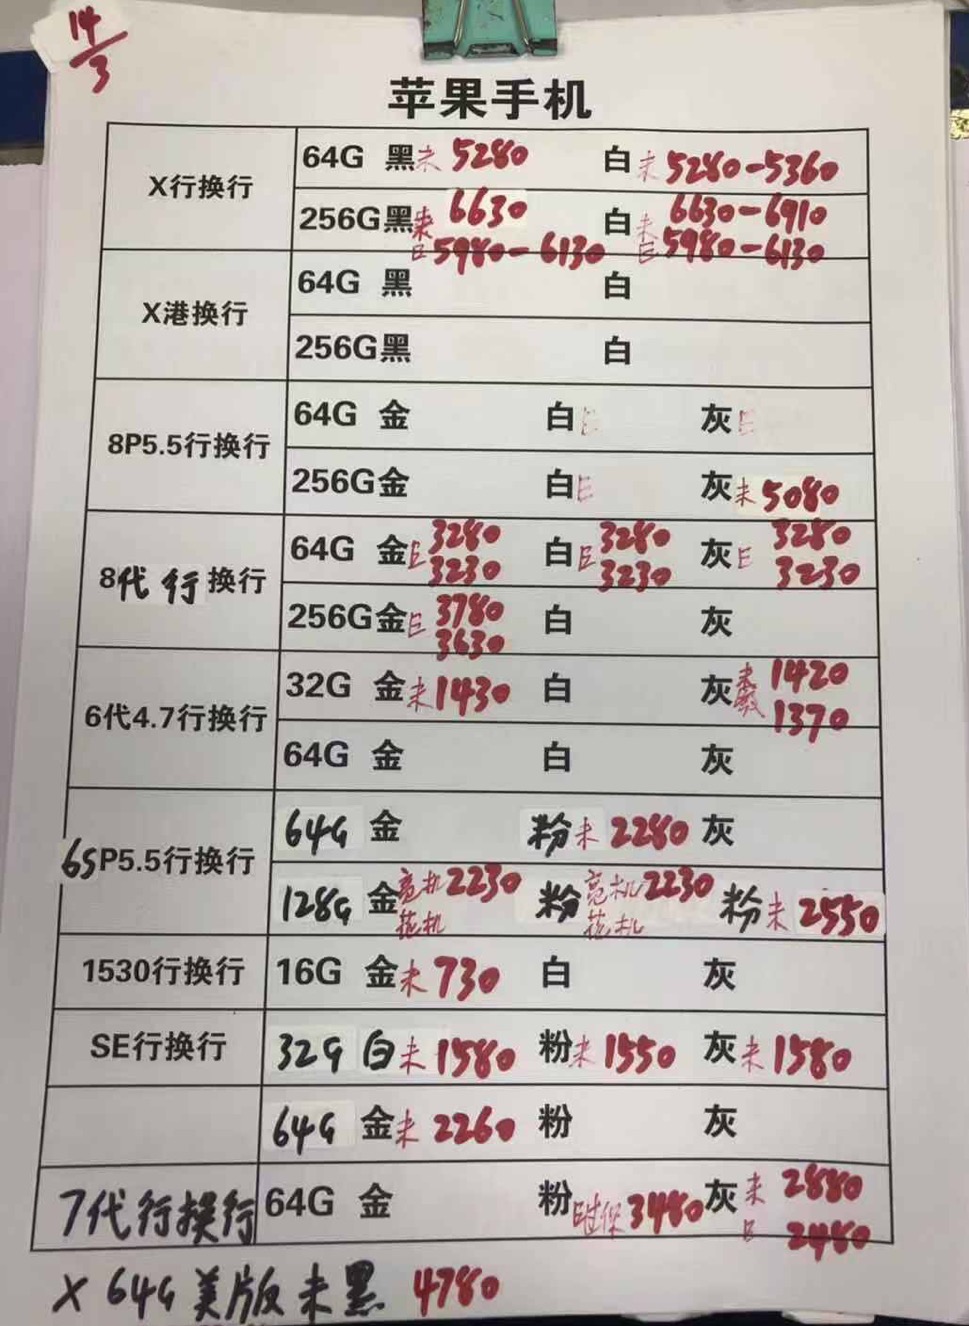 14/3
苹果手机
X行换行
64G 黑未 5280 白未 5280-5360
256G黑未 6630 白未 6630-6910
巳5980-6130 巳5980-6130
X港换行
64G 黑 白
256G黑 白
8P5.5行换行
64G 金 白巳 灰巳
256G金 白巳 灰未 5080
8代行换行
64G 金巳 3280 白巳 3280 灰巳 3280
3230 3230 3230
256G金巳 3780 白 灰
3630
6代4.7行换行
32G 金未1430 白 灰未 1420
1370
64G 金 白 灰
6SP5.5行换行
64G 金 粉未 2280 灰
128G 金亮机2230 粉亮机2230 粉未 2550
花机 花机
1530行换行
16G 金未 730 白 灰
SE行换行
32G 白未 1580 粉未 1550 灰未 1580
64G 金未 2260 粉 灰
7代行换行
64G 金 粉巳过保3480 灰未 2880
巳 2480
X 64G 美版未黑 4780